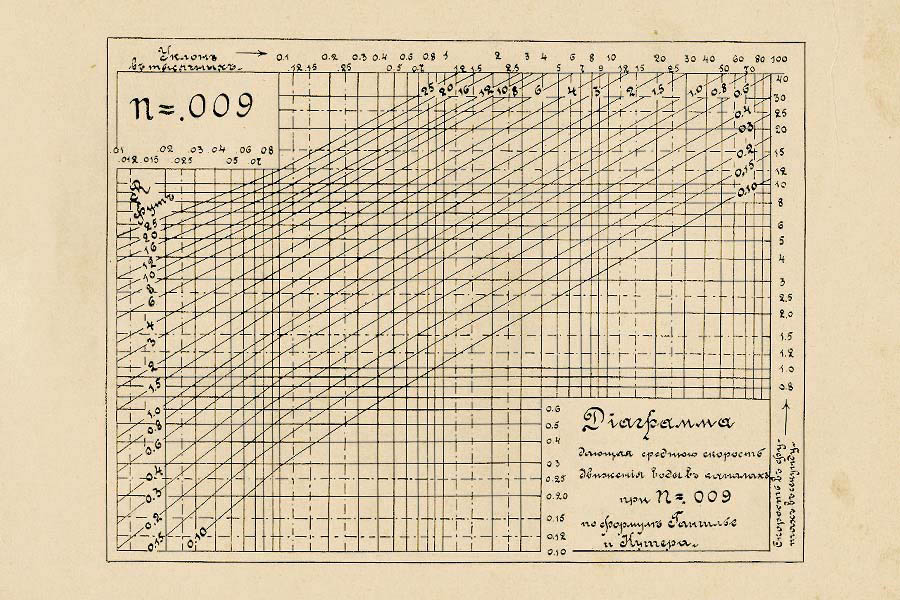 Уклонъ
въ тысячныхъ.
0.1 0.2 0.3 0.4 0.6 0.8 1 2 3 4 6 8 10 20 30 40 60 80 100
.12 .15 .25 0.5 0.7 12 15 2.5 5 7 9 12 15 25 50 70
n=.009
25 20 16 12 10 8 6 4 3 2 1.5 1.0 0.8 0.6
0.4
0.3
0.2
0.15
0.10
.01 .02 .03 .04 .06 .08
.012 .015 .025 .05 .07
футъ
25
20
16
12
10
8
6
4
3
2
1.5
1.0
0.8
0.6
0.4
0.3
0.2
0.15
0.10
40
30
25
20
15
12
10
8
6
5
4
3
2.5
2.0
1.5
1.2
1.0
0.8
0.6
0.5
0.4
0.3
0.25
0.20
0.15
0.12
0.10
Діаграмма
дающая среднюю скорость
движенія воды въ каналахъ
при N=.009
по формулѣ Гангилье
и Куттера.
Скорость въ фу-
тахъ въ секунду.